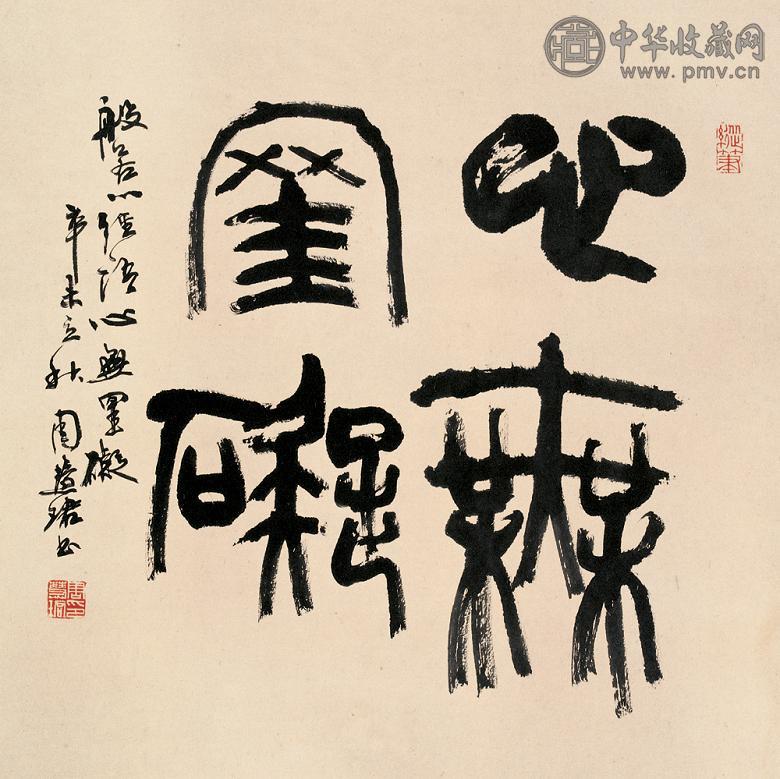 中华收藏网
www.pmv.cn
心無
罣礙
般若心經語心無罣礙
辛未立秋周慧珺书